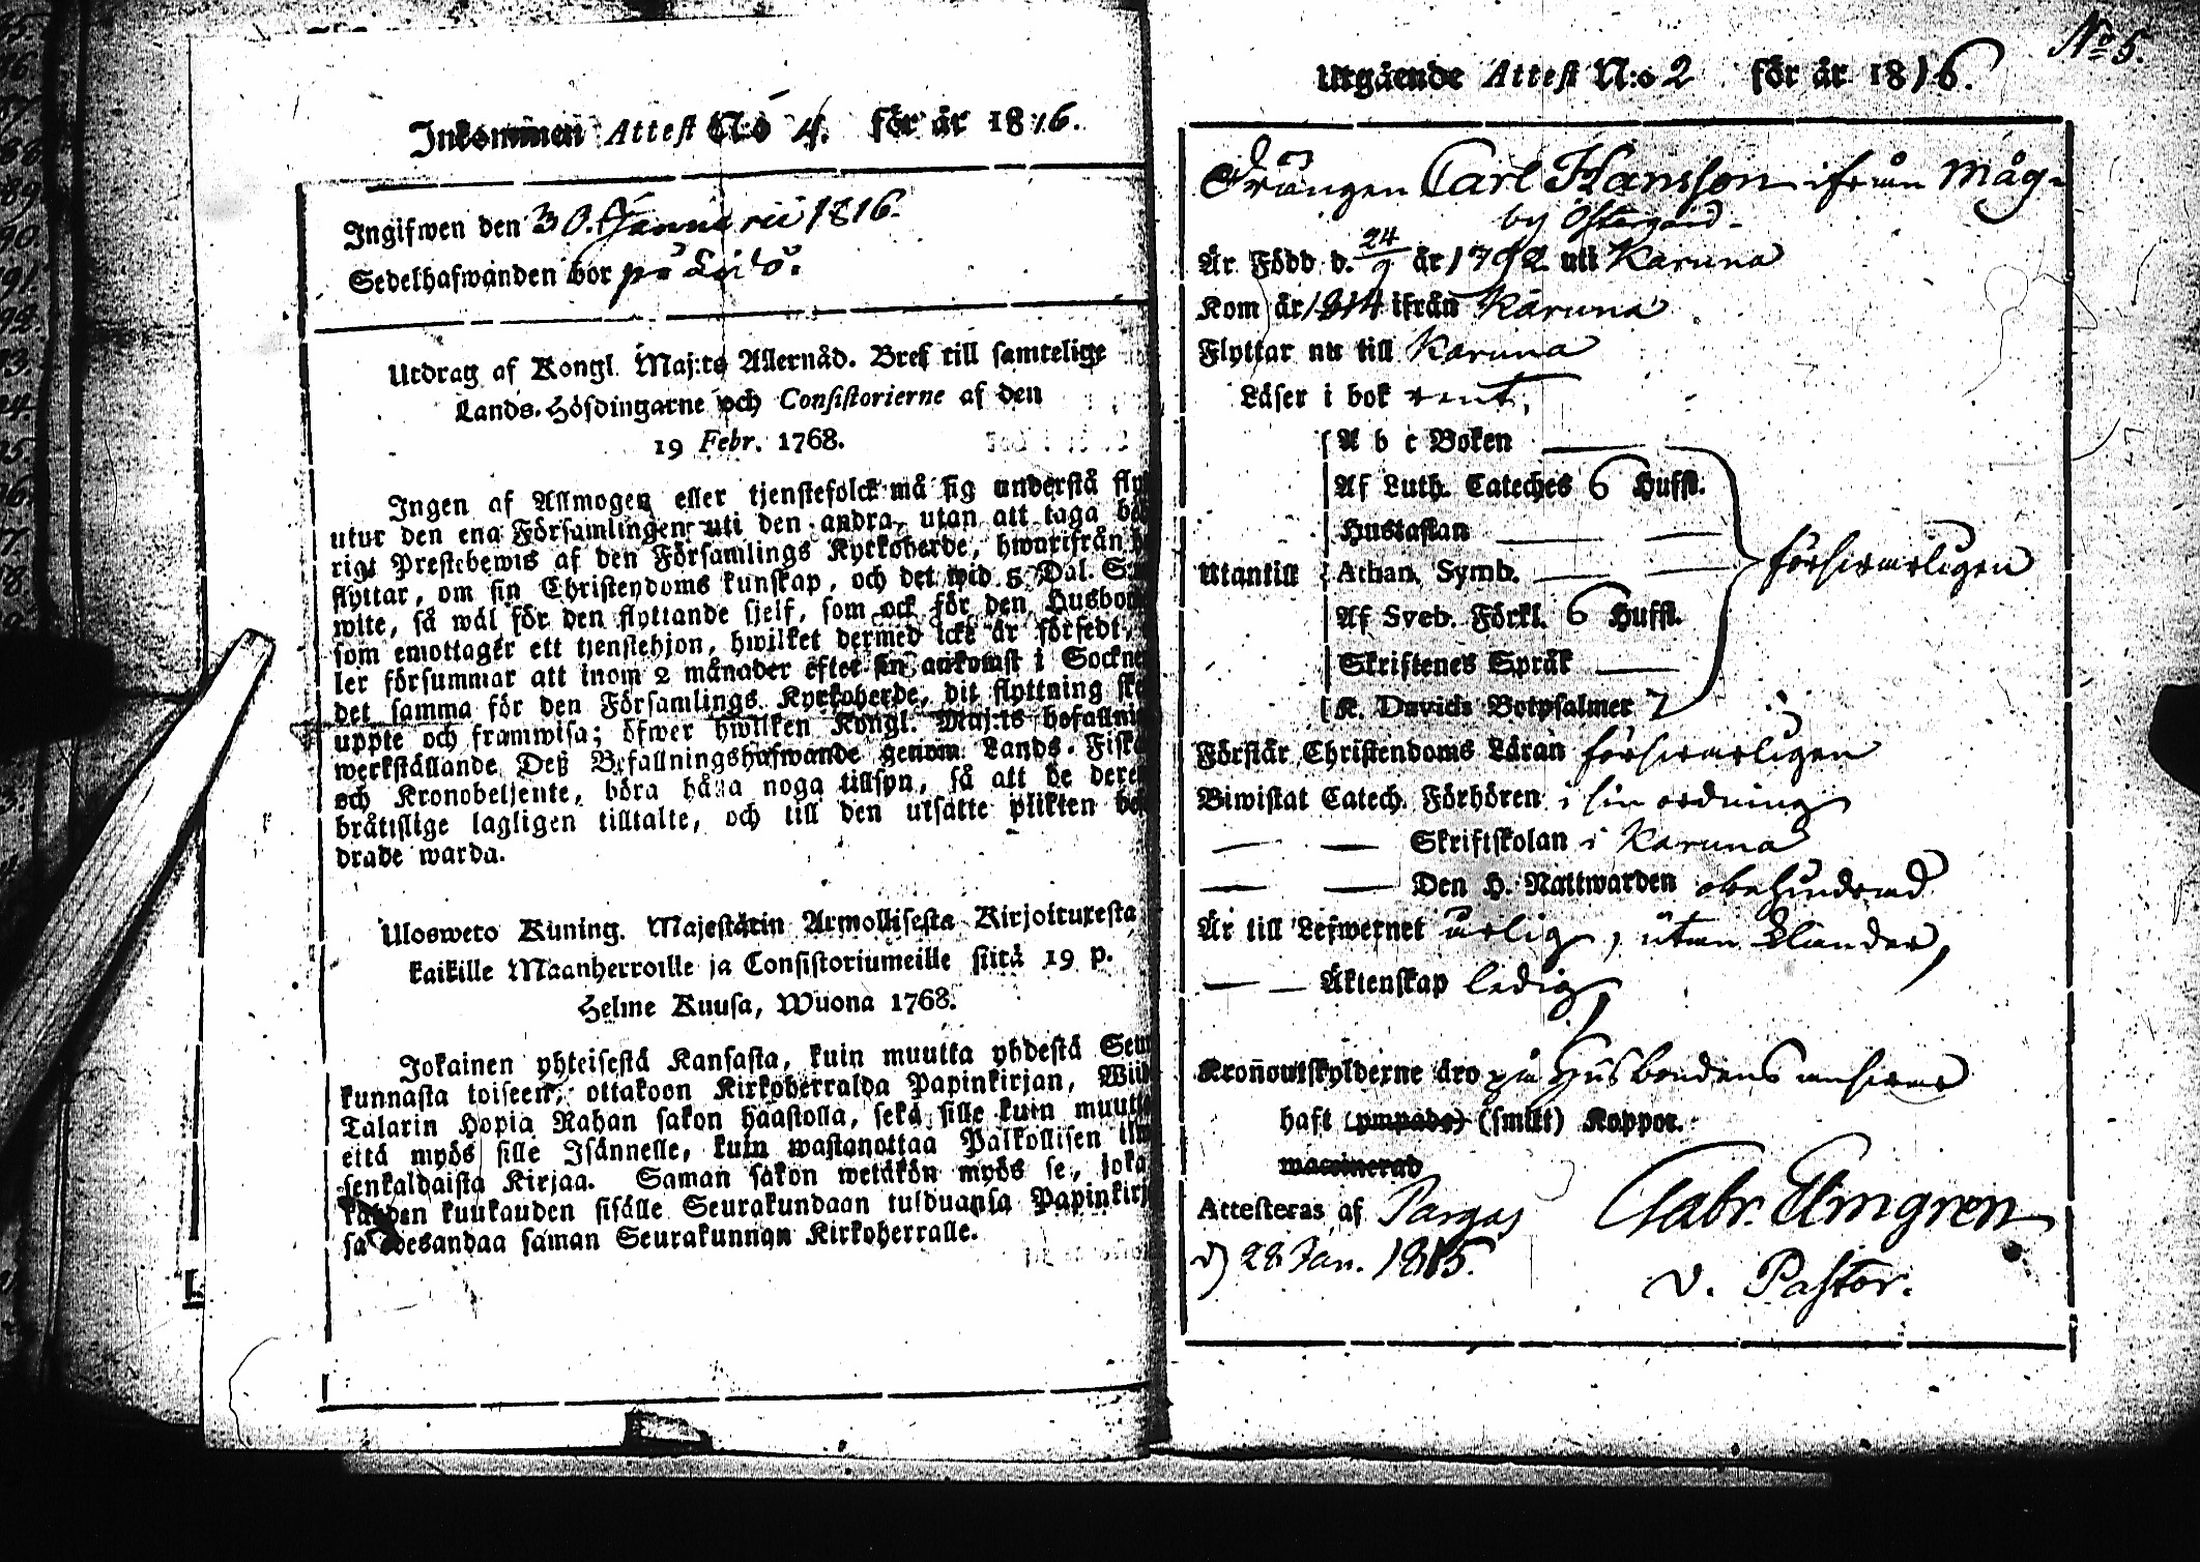 Inkommen Attest N:o 4. för år 1816.
Ingifwen den 30. Januarii 1816.
Sedelhafwanden bor på
Utdrag af Kongl. Maj:ts Allernåd. Bref till samtelige
Lands-Höfdingarne och Consistorierne af den
19 Febr. 1768.
Ingen af Allmogen eller tjenstefolck må sig understå fly
utur den ena Församlingen uti den andra, utan att taga be
rigt Prestebewis af den Församlings Kyrkoherde, hwarifrån
flyttar, om sin Christendoms kunskap, och det wid 5 Dal. S
wite, så wäl för den flyttande sjelf, som ock för den Husbon
som emottager ett tjenstehjon, hwilket dermed icke är försedt,
ler försummar att inom 2 månader efter sin ankomst i Sockne
det samma för den Församlings Kyrkoherde, dit flyttning ske
uppte och framwisa; öfwer hwilken Kongl. Maj:ts befallni
werkställande Deß Befallningshafwande genom Lands-Fiska
och Kronobetjente, böra hafwa noga tillsyn, så att de dere
bråtslige lagligen tilltalte, och till den utsatte plikten be
drade warda.
Ulosweto Kuning. Majestätin Armollisesta Kirjoituxesta
kaikille Maanherroille ja Consistoriumeille siitä 19 p.
Helme Kuusa, Wuona 1768.
Jokainen yhteisestä Kansasta, kuin muutta yhdestä Seur
kunnasta toiseen, ottakoon Kirkoherralda Papinkirjan, Wiid
Talarin Hopia Rahan sakon haastolla, sekä sille kuin muutta
että myös sille Isännelle, kuin wastanottaa Palkollisen ilm
senkaldaista Kirjaa. Saman sakon wetäkön myös se, joka
kahden kuukauden sisälle Seurakundaan tulduansa Papinkirj
sa edesandaa saman Seurakunnan Kirkoherralle.
No 5.
Utgående Attest N:o 2 för år 1816.
Drängen Carl Hansson ifrån Måg-
by Östergård.
Är Född d. 24/9 år 1792 uti Karuna
Kom år 1814 ifrån Karuna
Flyttar nu till Karuna
Läser i bok rent,
A b c Boken
Af Luth. Cateches 6 Hufst.
Hustaflan
Utantill Athan. Symb. försvarligen
Af Sveb. Förkl. 6 Hufst.
Skriftenes Språk
K. Davids Botpsalmer 7
Förstår Christendoms Läran försvarligen
Biwistat Catech. Förhören i sin ordning
— — Skriftskolan i Karuna
— — Den H. Nattwarden obehindrad
Är till Lefwernet ärlig, utan klander,
— — Äktenskap ledig,
Kronoutskylderne äro på Husbondens ansvar
haft (ympade) (smitt) Koppor.
waccinerad
Attesteras af Pargas Gabr. Elmgren
d) 28 Jan. 1816. v. Pastor.